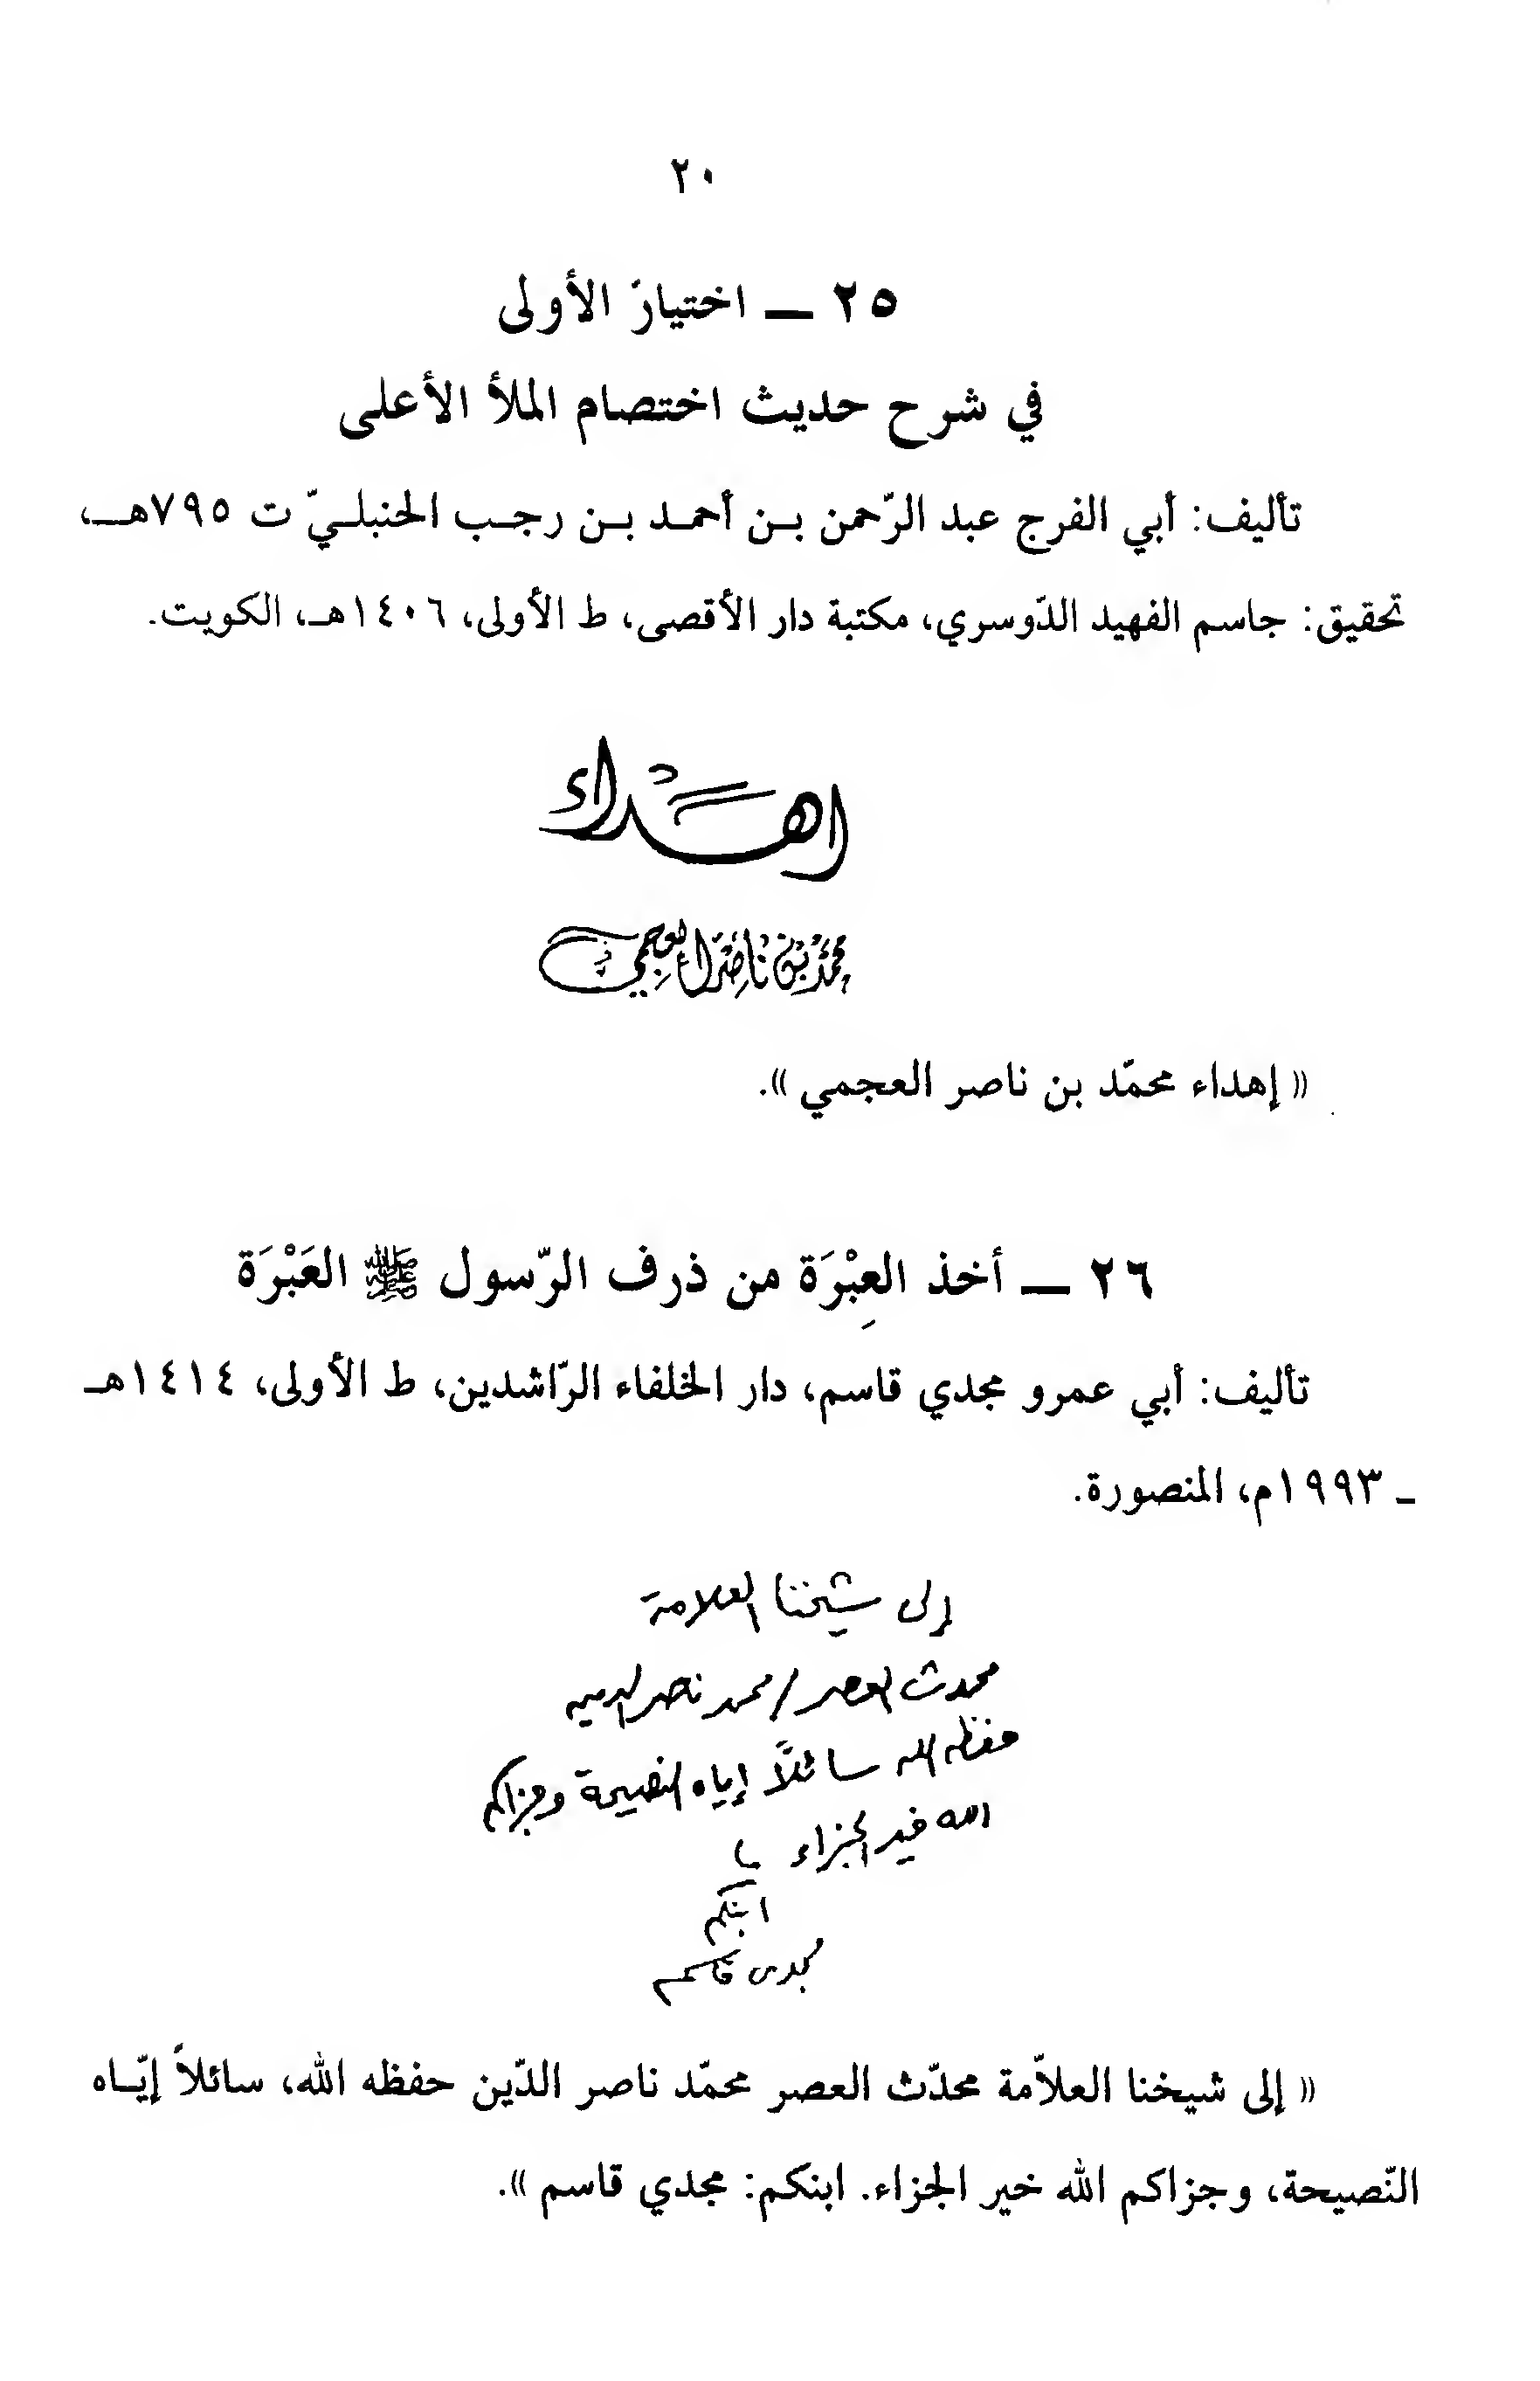 ٢٠
٢٥ ــ اختيارُ الأولى
في شرح حديث اختصام الملأ الأعلى
تأليف: أبي الفرج عبد الرّحمن بـن أحمـد بـن رجـب الحنبلـيّ ت ٧٩٥هـ،
تحقيق: جاسم الفهيد الدّوسري، مكتبة دار الأقصى، ط الأولى، ١٤٠٦هـ، الكويت.
اهداء
محمد بن ناصر العجمي
« إهداء محمّد بن ناصر العجمي ».
٢٦ ــ أخذ العِبْرَة من ذرف الرّسول ﷺ العَبْرَة
تأليف: أبي عمرو مجدي قاسم، دار الخلفاء الرّاشدين، ط الأولى، ١٤١٤هـ
ـ ١٩٩٣م، المنصورة.
إلى شيخنا العلامة
محدث العصر / محمد ناصر الدين
حفظه الله سائلاً إياه النصيحة وجزاكم
الله خير الجزاء
ابنكم
مجدى قاسم
« إلى شيخنا العلاّمة محدّث العصر محمّد ناصر الدّين حفظه الله، سائلاً إيّـاه
النّصيحة، وجزاكم الله خير الجزاء. ابنكم: مجدي قاسم ».